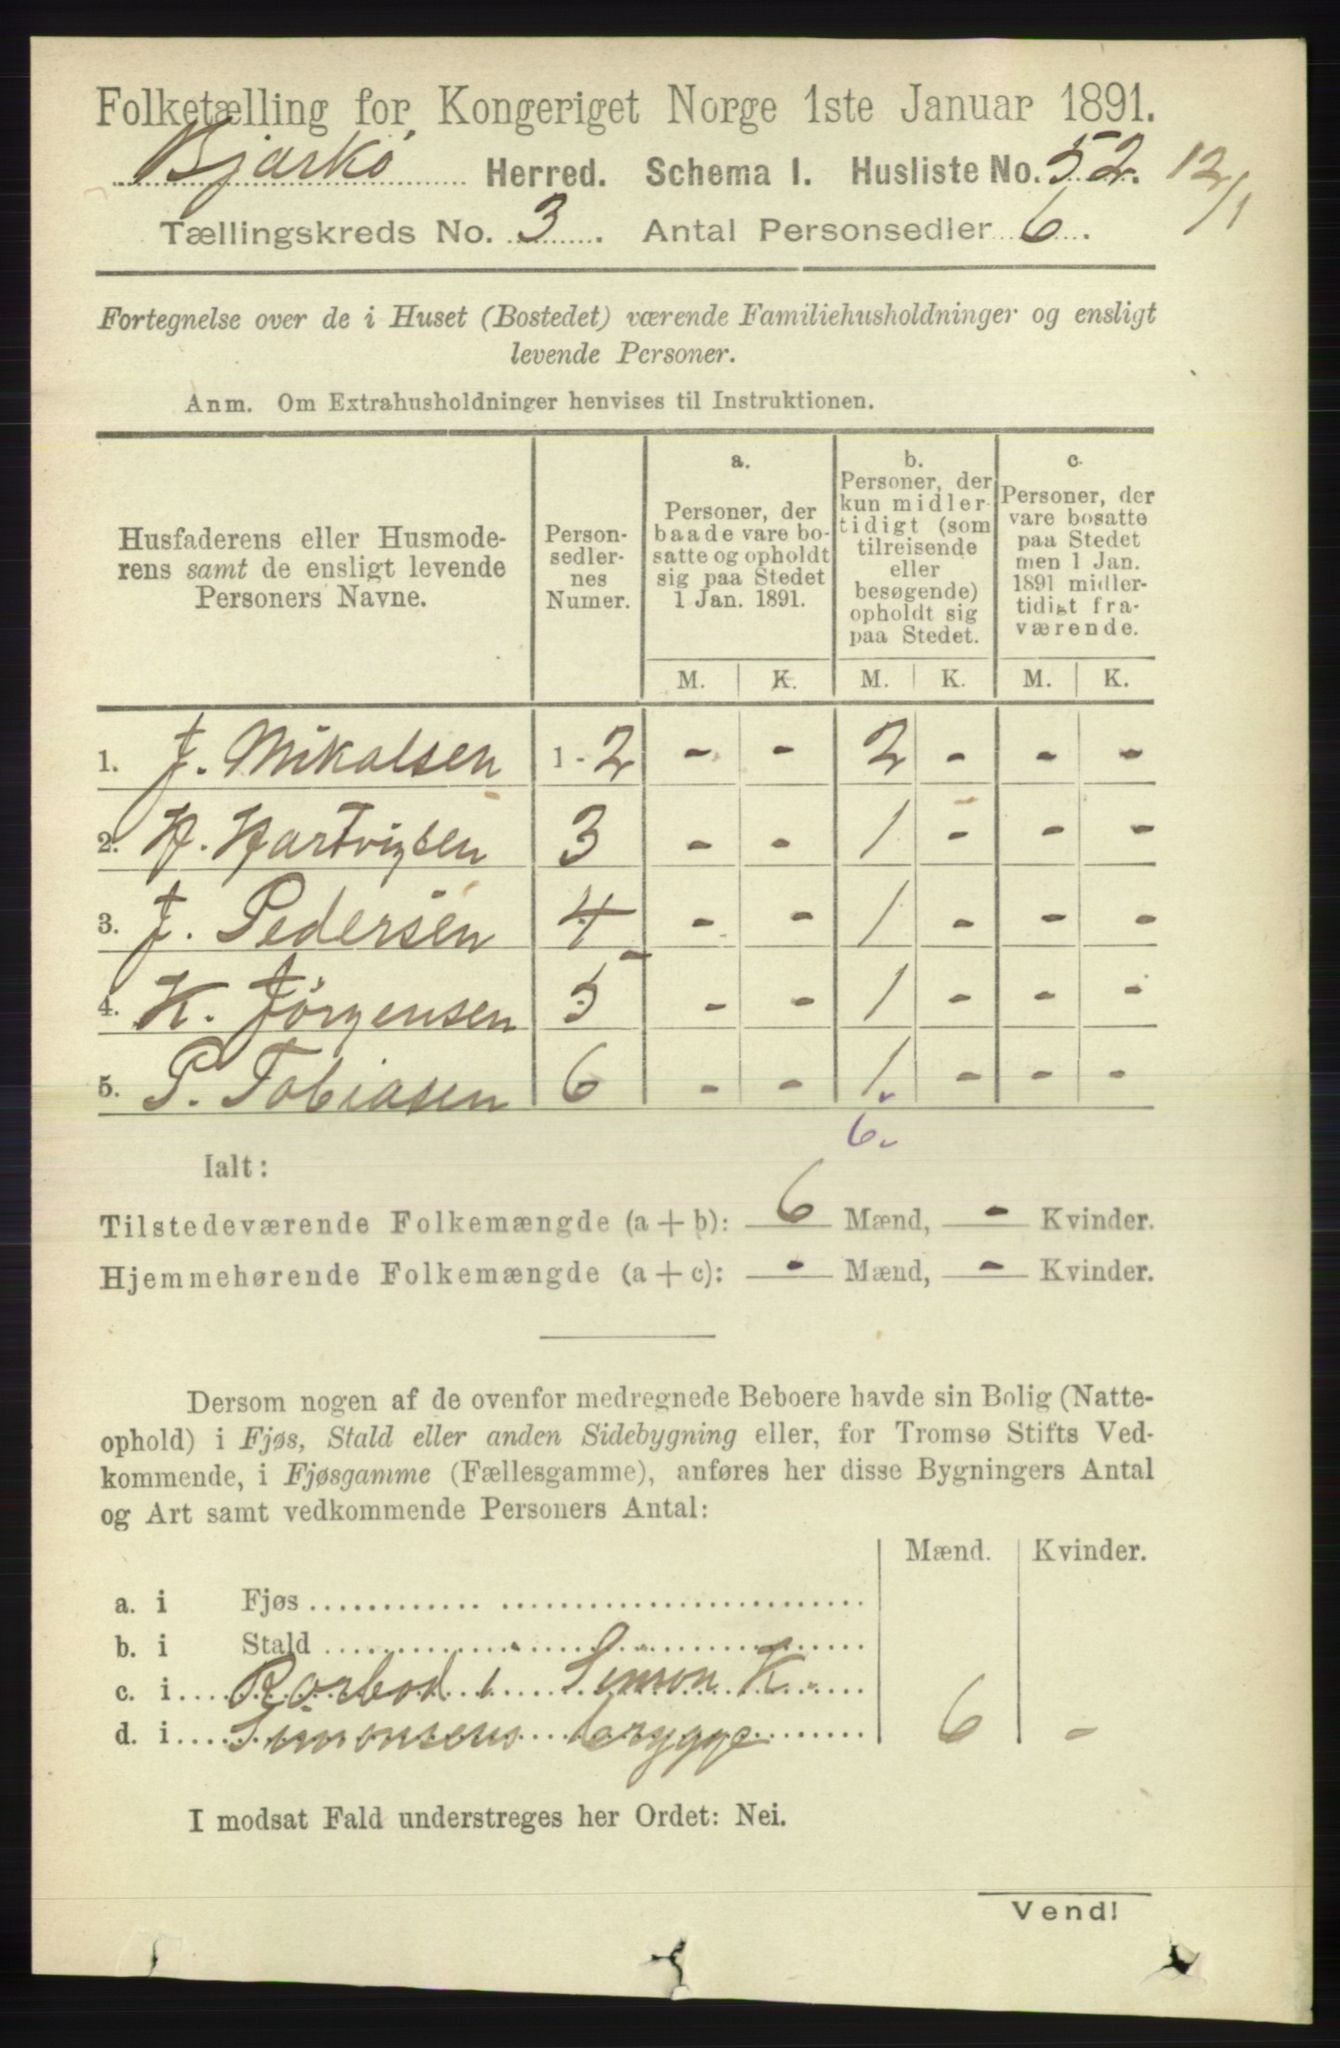 Folketælling for Kongeriget Norge 1ste Januar 1891.
Bjarkö Herred. Schema I. Husliste No. 52. 12/1
Tællingskreds No. 3. Antal Personsedler 6.
Fortegnelse over de i Huset (Bostedet) værende Familiehusholdninger og ensligt
levende Personer.
Anm. Om Extrahusholdninger henvises til Instruktionen.
Husfaderens eller Husmode-
rens samt de ensligt levende
Personers Navne.
Person-
sedler-
nes
Numer.
a.
Personer, der
baade vare bo-
satte og opholdt
sig paa Stedet
1 Jan. 1891.
b.
Personer, der
kun midler-
tidigt (som
tilreisende
eller
besøgende)
opholdt sig
paa Stedet.
c.
Personer, der
vare bosatte
paa Stedet
men 1 Jan.
1891 midler-
tidigt fra-
værende.
M. K. M. K. M. K.
1. J. Mikalsen 1 - 2 - - 2 - - -
2. H. Hartvigsen 3 - - 1 - - -
3. J. Pedersen 4 - - 1 - - -
4. K. Jörgensen 5 - - 1 - - -
5. P. Tobiasen 6 - - 1 - - -
6
Ialt:
Tilstedeværende Folkemængde (a + b): 6 Mænd, - Kvinder.
Hjemmehørende Folkemængde (a + c): - Mænd, - Kvinder.
Dersom nogen af de ovenfor medregnede Beboere havde sin Bolig (Natte-
ophold) i Fjøs, Stald eller anden Sidebygning eller, for Tromsø Stifts Ved-
kommende, i Fjøsgamme (Fællesgamme), anføres her disse Bygningers Antal
og Art samt vedkommende Personers Antal:
Mænd. Kvinder.
a. i Fjøs
b. i Stald
c. i Rorbod i Simon K
d. i Simonsens brygge 6 -
I modsat Fald understreges her Ordet: Nei.
Vend!